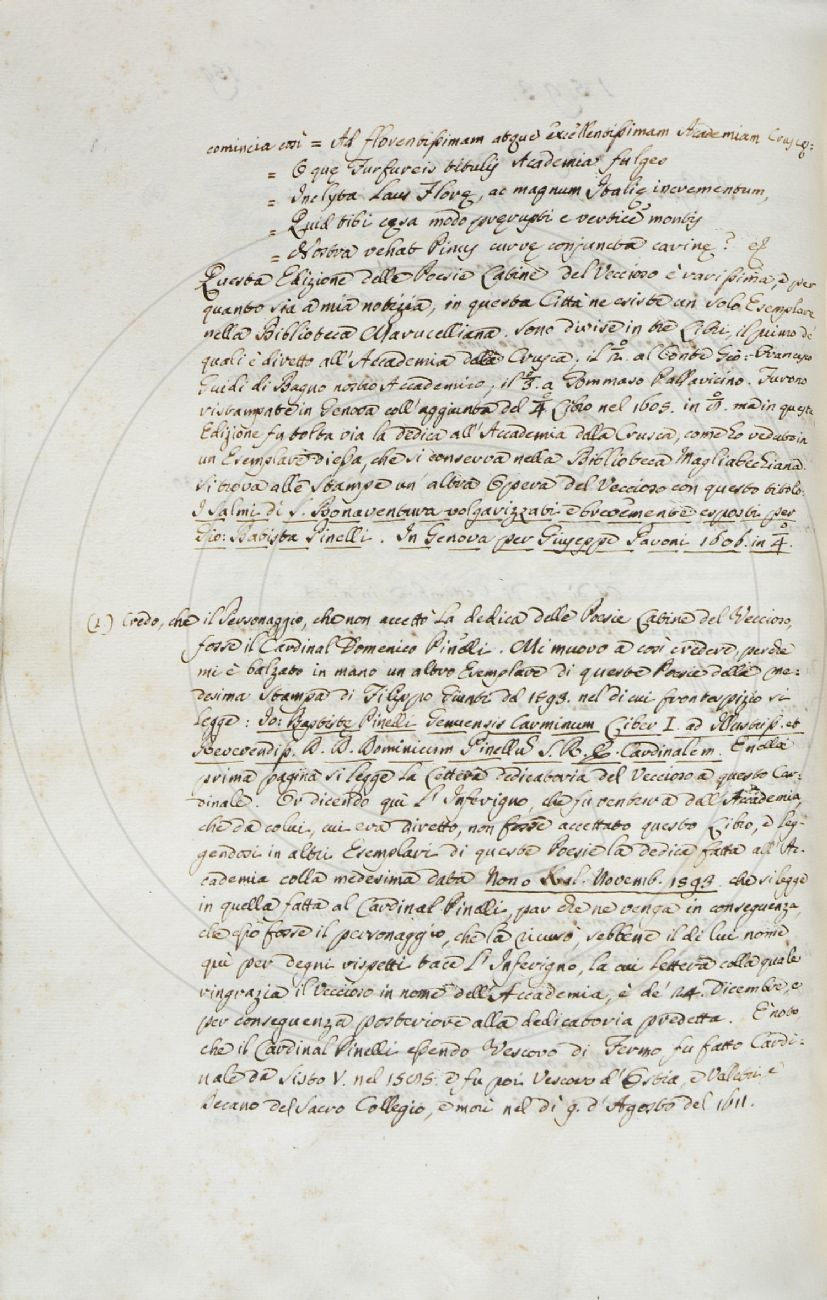 comincia così = Ad florentissimam atque excellentissimam Academiam Cruscę:
= O que Furfureis titulis Academia fulges
= Inclyta Laus Florę, ac magnum Italię incrementum,
= Quid tibi cęsa modo pręrupti e vertice montis
= Nostra vehat Pinus curvę conjuncta carinę? &
Questa Edizione delle Poesie Latine del Veccioso è rarissima, e per
quanto sia a mia notizia, in questa Città ne esiste un solo Esemplare
nella Biblioteca Marucelliana. Sono divise in tre Libri, il primo de'
quali è diretto all'Accademia della Crusca. il 2.º al Conte Gio: Francesco
Guidi di Bagno nostro Accademico, il 3.º a Tommaso Pallavicino. Furono
ristampate in Genova coll'aggiunta del 4.º Libro nel 1605. in 8.º ma in questa
Edizione fu tolta via la dedica all'Accademia della Crusca, come ho veduto in
un Esemplare d'essa, che si conserva nella Biblioteca Magliabechiana.
Si trova alle Stampe un altra Opera del Veccioso con questo titolo:
I Salmi di S. Bonaventura volgarizzati e brevemente esposti per
Gio: Batista Pinelli. In Genova per Giuseppe Pavoni 1606. in 4.º
(1) Credo, che il Personaggio, che non accettò la dedica delle Poesie Latine del Veccioso,
fosse il Cardinal Domenico Pinelli. Mi muovo a così credere, perche
mi è balzato in mano un altro Esemplare di queste Poesie della me:
desima Stampa di Filippo Giunti del 1593. nel di cui frontespizio si
legge: Jo: Baptistę Pinelli Genuensis Carminum Liber I. ad Illustriss. et
Reverendiss. D. D. Dominicum Pinellũ S. R. E. Cardinalem. E nella
prima pagina si legge la Lettera dedicatoria del Veccioso a questo Car:
dinale. Or dicendo quì l'Inferigno, che fu ventura dall'Accademia,
che da colui, cui era diretto, non fosse accettato questo Libro, e leg-
gendosi in altri Esemplari di queste Poesie la dedica fatta all'Ac:
cademia colla medesima data Nono Kal. Novemb. 1593. che si legge
in quella fatta al Cardinal Pinelli, par che ne venga in conseguenza,
che ciò fosse il personaggio, che la ricusò, sebbene il di lui nome
quì per degni rispetti tace l'Inferigno, la cui Lettera colla quale
ringrazia il Veccioso in nome dell'Accademia, è de' 24. Dicembre, e
per conseguenza posteriore alla dedicatoria predetta. È noto,
che il Cardinal Pinelli essendo Vescovo di Fermo fu fatto Cardi:
nale da Sisto V. nel 1585. e fu poi Vescovo d'Ostia, e Velletri e
Decano del Sacro Collegio, e morì nel dì 9. d'Agosto del 1611.